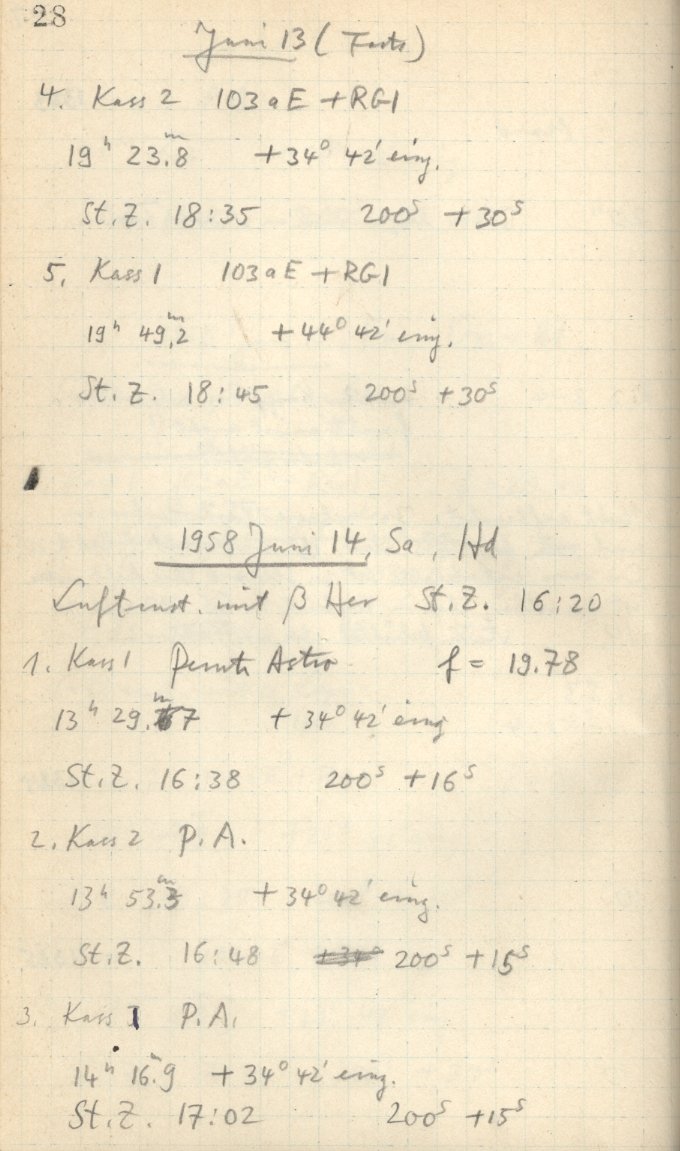 28
Juni 13 (Forts)
4. Kass 2 103aE + RG1
19ʰ 23.8ᵐ +34° 42' eing.
St.Z. 18:35 200ˢ +30ˢ
5. Kass 1 103aE + RG1
19ʰ 49.2ᵐ +44° 42' eing.
St.Z. 18:45 200ˢ +30ˢ
1958 Juni 14, Sa, Hd
mit β Her St.Z. 16:20
1. Kass 1 Perutz Astro f = 19.78
13ʰ 29.7ᵐ +34° 42' eing
St.Z. 16:38 200ˢ +16ˢ
2. Kass 2 P.A.
13ʰ 53.3ᵐ +34° 42' eing.
St.Z. 16:48 200ˢ +15ˢ
3. Kass 1 P.A.
14ʰ 16.9ᵐ +34° 42' eing.
St.Z. 17:02 200ˢ +15ˢ